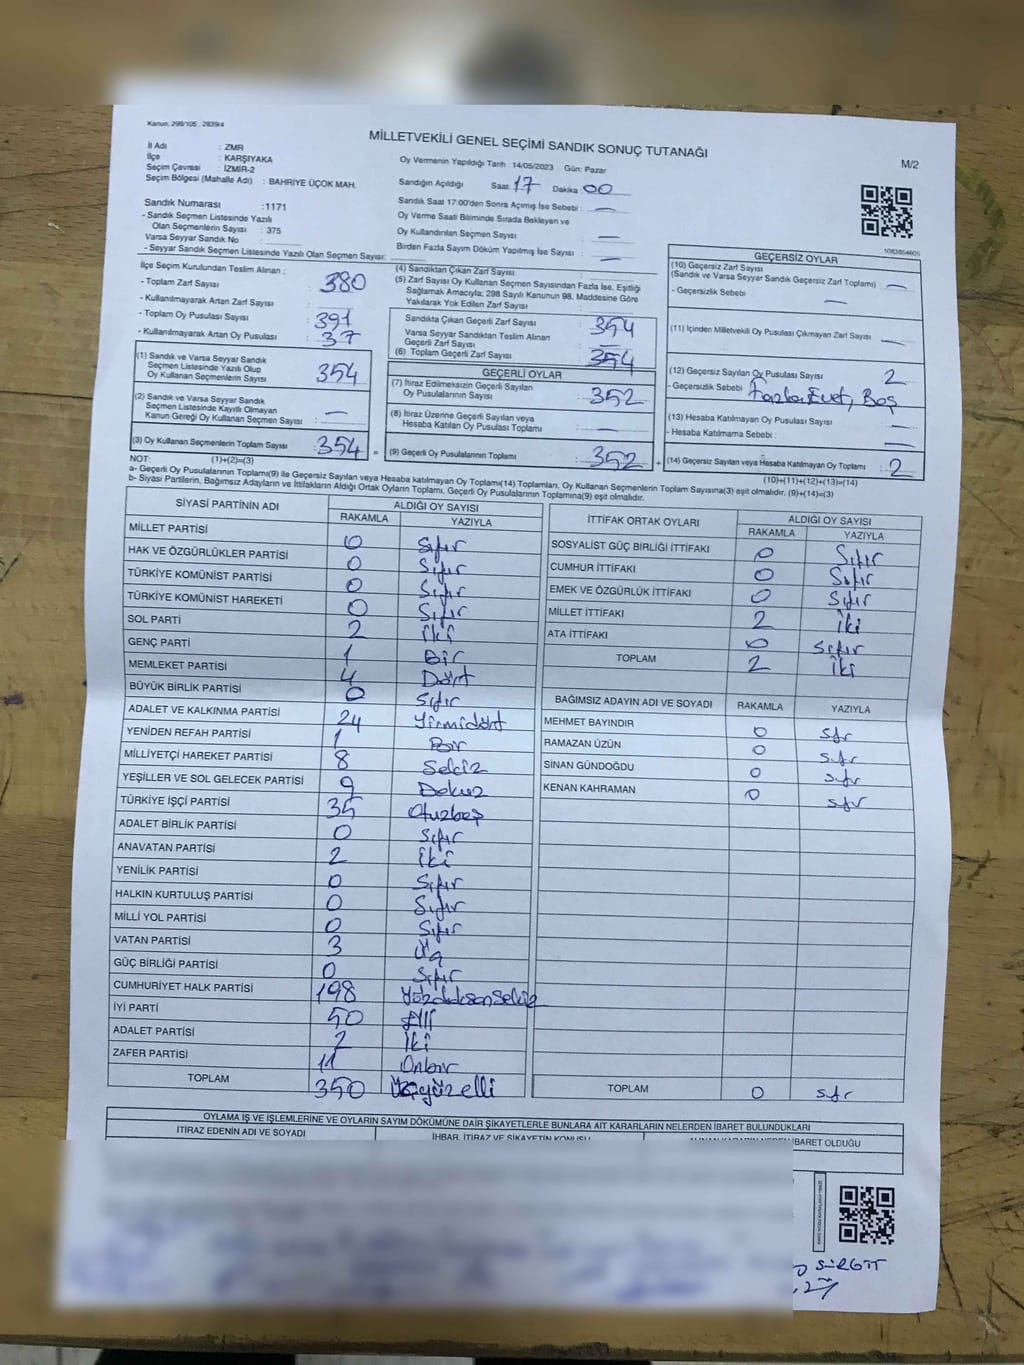 Kanun: 298/105 , 2839/4
MİLLETVEKİLİ GENEL SEÇİMİ SANDIK SONUÇ TUTANAĞI
M/2
İl Adı : ZMR
İlçe : KARŞIYAKA
Seçim Çevresi : İZMİR-2
Seçim Bölgesi (Mahalle Adı) : BAHRİYE ÜÇOK MAH.
Sandık Numarası :1171
- Sandık Seçmen Listesinde Yazılı
Olan Seçmenlerin Sayısı : 375
Varsa Seyyar Sandık No :
- Seyyar Sandık Seçmen Listesinde Yazılı Olan Seçmen Sayısı:
Oy Vermenin Yapıldığı Tarih 14/05/2023 Gün: Pazar
Sandığın Açıldığı Saat 17 Dakika 00
Sandık Saat 17:00'den Sonra Açımış İse Sebebi : —
Oy Verme Saati Bitiminde Sırada Bekleyen ve
Oy Kullandırılan Seçmen Sayısı —
Birden Fazla Sayım Döküm Yapılmış İse Sayısı : —
1083854605
İlçe Seçim Kurulundan Teslim Alınan :
- Toplam Zarf Sayısı : 380
- Kullanılmayarak Artan Zarf Sayısı :
- Toplam Oy Pusulası Sayısı : 391
- Kullanılmayarak Artan Oy Pusulası : 37
(1) Sandık ve Varsa Seyyar Sandık
Seçmen Listesinde Yazılı Olup
Oy Kullanan Seçmenlerin Sayısı : 354
(2) Sandık ve Varsa Seyyar Sandık
Seçmen Listesinde Kayıtlı Olmayan
Kanun Gereği Oy Kullanan Seçmen Sayısı : —
(3) Oy Kullanan Seçmenlerin Toplam Sayısı : 354 =
(4) Sandıktan Çıkan Zarf Sayısı :
(5) Zarf Sayısı Oy Kullanan Seçmen Sayısından Fazla İse, Eşitliği
Sağlamak Amacıyla; 298 Sayılı Kanunun 98. Maddesine Göre
Yakılarak Yok Edilen Zarf Sayısı :
Sandıkta Çıkan Geçerli Zarf Sayısı : 354
Varsa Seyyar Sandıktan Teslim Alınan
Geçerli Zarf Sayısı : —
(6) Toplam Geçerli Zarf Sayısı : 354
GEÇERLİ OYLAR
(7) İtiraz Edilmeksizin Geçerli Sayılan
Oy Pusulalarının Sayısı : 352
(8) İtiraz Üzerine Geçerli Sayılan veya
Hesaba Katılan Oy Pusulası Toplamı : —
(9) Geçerli Oy Pusulalarının Toplamı : 352 +
GEÇERSİZ OYLAR
(10) Geçersiz Zarf Sayısı
(Sandık ve Varsa Seyyar Sandık Geçersiz Zarf Toplamı) : —
- Geçersizlik Sebebi : —
(11) İçinden Milletvekili Oy Pusulası Çıkmayan Zarf Sayısı : —
(12) Geçersiz Sayılan Oy Pusulası Sayısı : 2
- Geçersizlik Sebebi : Fazla Evet, Boş
(13) Hesaba Katılmayan Oy Pusulası Sayısı : —
- Hesaba Katılmama Sebebi : —
(14) Geçersiz Sayılan veya Hesaba Katılmayan Oy Toplamı : 2
NOT: (1)+(2)=(3)
(10)+(11)+(12)+(13)=(14)
a- Geçerli Oy Pusulalarının Toplamı(9) ile Geçersiz Sayılan veya Hesaba katılmayan Oy Toplamı(14) Toplamları, Oy Kullanan Seçmenlerin Toplam Sayısına(3) eşit olmalıdır. (9)+(14)=(3)
b- Siyasi Partilerin, Bağımsız Adayların ve İttifakların Aldığı Ortak Oyların Toplamı, Geçerli Oy Pusulalarının Toplamına(9) eşit olmalıdır.
SİYASİ PARTİNİN ADI ALDIĞI OY SAYISI
RAKAMLA YAZIYLA
MİLLET PARTİSİ 0 Sıfır
HAK VE ÖZGÜRLÜKLER PARTİSİ 0 Sıfır
TÜRKİYE KOMÜNİST PARTİSİ 0 Sıfır
TÜRKİYE KOMÜNİST HAREKETİ 0 Sıfır
SOL PARTİ 2 İki
GENÇ PARTİ 1 Bir
MEMLEKET PARTİSİ 4 Dört
BÜYÜK BİRLİK PARTİSİ 0 Sıfır
ADALET VE KALKINMA PARTİSİ 24 Yirmidört
YENİDEN REFAH PARTİSİ 1 Bir
MİLLİYETÇİ HAREKET PARTİSİ 8 Sekiz
YEŞİLLER VE SOL GELECEK PARTİSİ 9 Dokuz
TÜRKİYE İŞÇİ PARTİSİ 35 Otuzbeş
ADALET BİRLİK PARTİSİ 0 Sıfır
ANAVATAN PARTİSİ 2 İki
YENİLİK PARTİSİ 0 Sıfır
HALKIN KURTULUŞ PARTİSİ 0 Sıfır
MİLLİ YOL PARTİSİ 0 Sıfır
VATAN PARTİSİ 3 Üç
GÜÇ BİRLİĞİ PARTİSİ 0 Sıfır
CUMHURİYET HALK PARTİSİ 198 Yüzdoksansekiz
İYİ PARTİ 50 Elli
ADALET PARTİSİ 2 İki
ZAFER PARTİSİ 11 Onbir
TOPLAM 350 Üçyüzelli
İTTİFAK ORTAK OYLARI ALDIĞI OY SAYISI
RAKAMLA YAZIYLA
SOSYALİST GÜÇ BİRLİĞİ İTTİFAKI 0 Sıfır
CUMHUR İTTİFAKI 0 Sıfır
EMEK VE ÖZGÜRLÜK İTTİFAKI 0 Sıfır
MİLLET İTTİFAKI 2 İki
ATA İTTİFAKI 0 Sıfır
TOPLAM 2 İki
BAĞIMSIZ ADAYIN ADI VE SOYADI RAKAMLA YAZIYLA
MEHMET BAYINDIR 0 sfr
RAMAZAN ÜZÜN 0 sfr
SİNAN GÜNDOĞDU 0 sfr
KENAN KAHRAMAN 0 sfr
TOPLAM 0 sfr
OYLAMA İŞ VE İŞLEMLERİNE VE OYLARIN SAYIM DÖKÜMÜNE DAİR ŞİKAYETLERLE BUNLARA AİT KARARLARIN NELERDEN İBARET BULUNDUKLARI
İTİRAZ EDENİN ADI VE SOYADI İHBAR, İTİRAZ VE ŞİKAYETİN KONUSU İBARET OLDUĞU